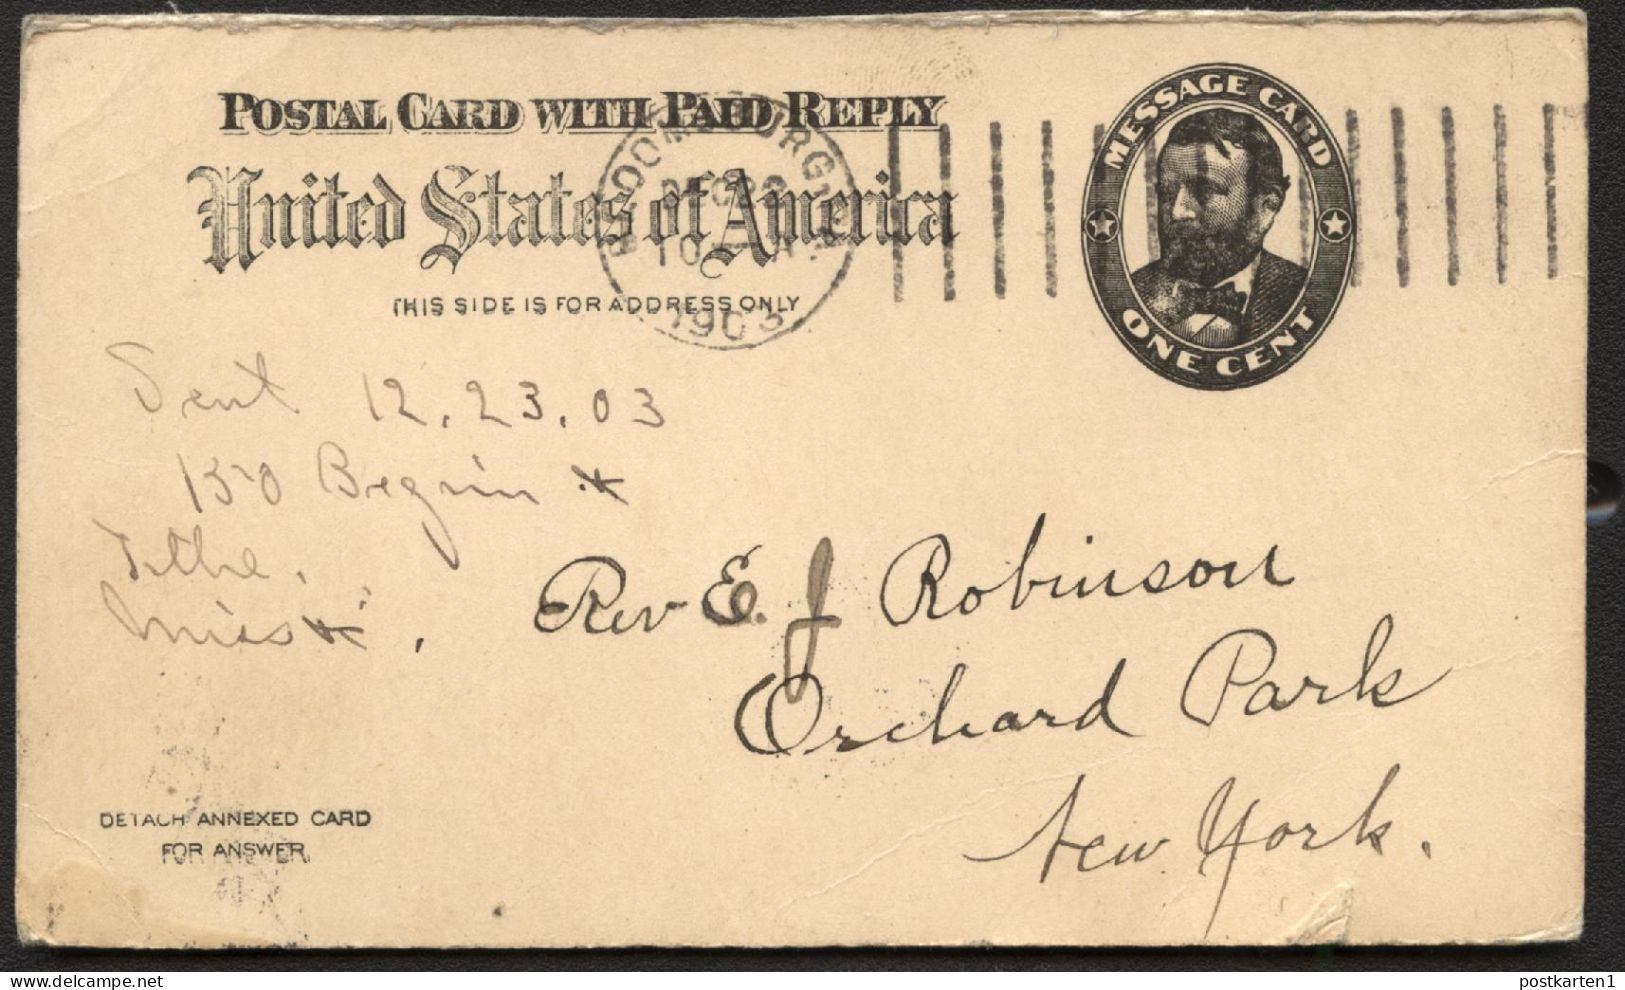 POSTAL CARD WITH PAID REPLY
United States of America
THIS SIDE IS FOR ADDRESS ONLY
BLOOMSBURG PA.
DEC 26
10 A
1903
MESSAGE CARD
ONE CENT
Sent 12.23.03
150 Begin
Tithe.
Rev E. J Robinson
Orchard Park
New York.
DETACH ANNEXED CARD
FOR ANSWER.
postkarten1